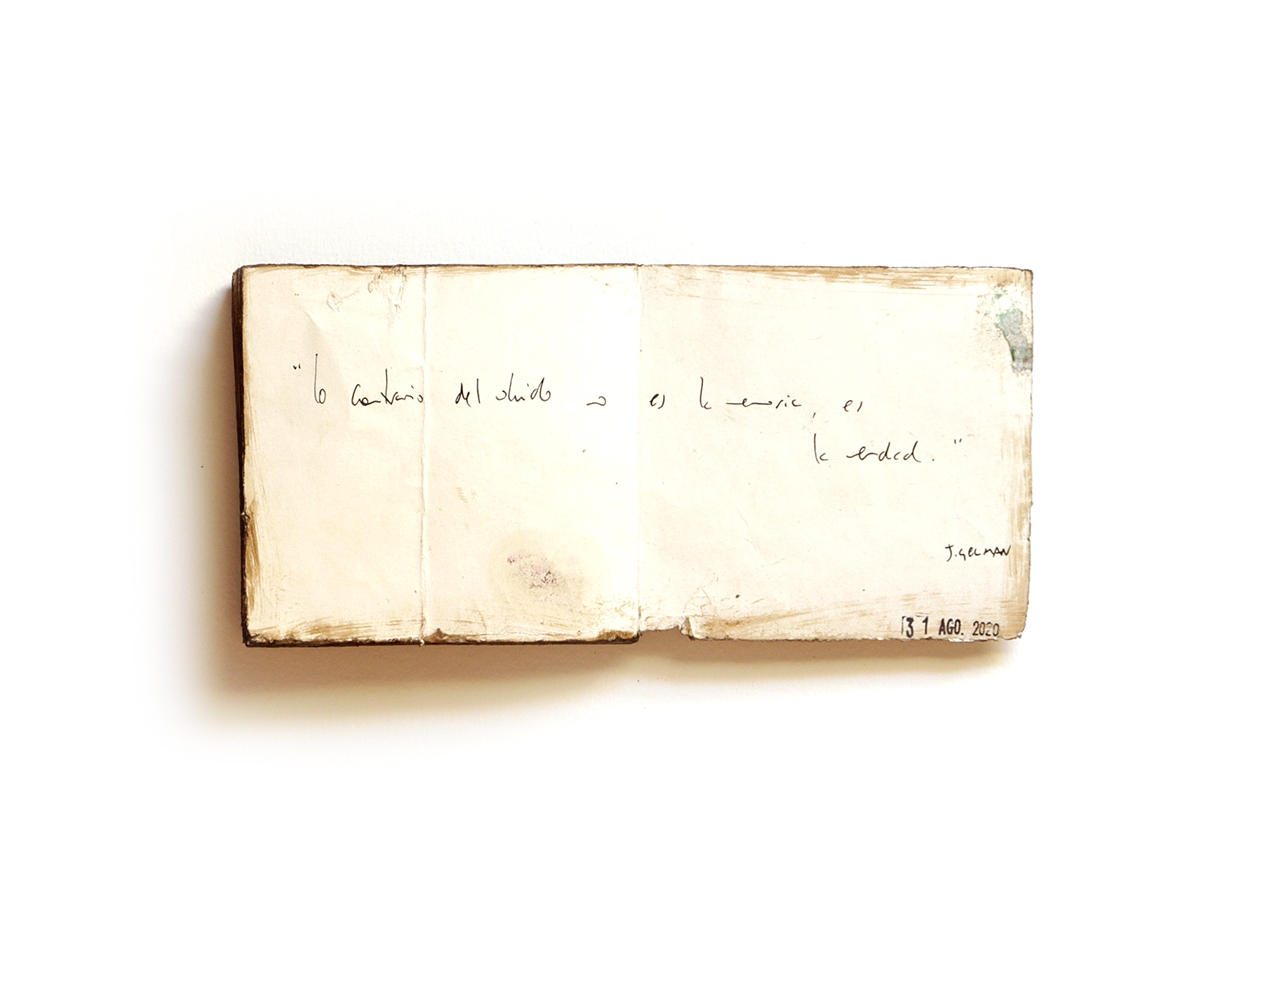 "lo contrario del olvido no es la memoria, es
la verdad."
J. GELMAN
31 AGO. 2020